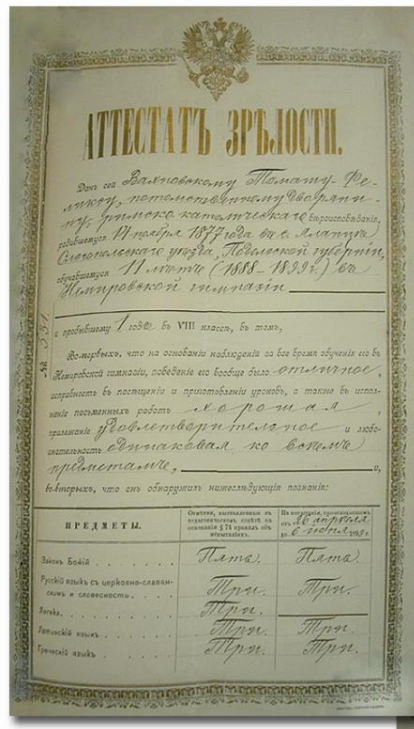 АТТЕСТАТЪ ЗРѢЛОСТИ.
Данъ сей Вахновскому Томашу-Фе-
ликсу, потомственному дворяни-
ну, римско-католическаго вѣроисповѣданія,
родившемуся 17 ноября 1877 года въ с.
уѣзда, Подольской губерніи,
обучавшемуся 11 лѣтъ (1888–1899 г.) въ
Немировской гимназіи
и пробывшему 1 годъ въ VIII классѣ, въ томъ,
№ 331
Во-первыхъ, что на основаніи наблюденій за все время обученія его въ
Немировской гимназіи, поведеніе его вообще было отличное,
исправность въ посѣщеніи и приготовленіи уроковъ, а также въ испол-
неніи письменныхъ работъ хорошая,
прилежаніе удовлетворительное и любо-
знательность одинаковая ко всѣмъ
предметамъ, и,
во-вторыхъ, что онъ обнаружилъ нижеслѣдующія познанія:
ПРЕДМЕТЫ.
Отмѣтки, выставленныя въ
педагогическомъ совѣтѣ на
основаніи § 74 правилъ объ
испытаніяхъ.
На испытаніи, происходившемъ
отъ 26 апрѣля
Законъ Божій Пять. Пять.
Русскій языкъ съ церковно-славян-
скимъ и словесность Три. Три.
Логика Три.
Латинскій языкъ Три. Три.
Греческій языкъ Три. Три.